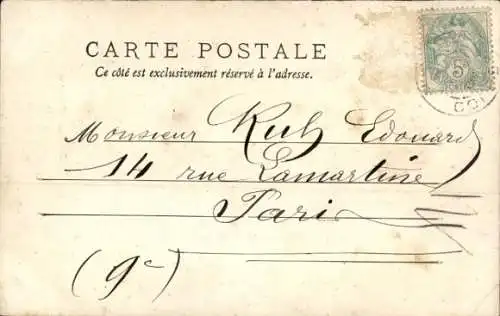 CARTE POSTALE
Ce côté est exclusivement réservé à l'adresse.
5
Monsieur Kuh Edouard
14 rue Lamartine
Paris
(9e)